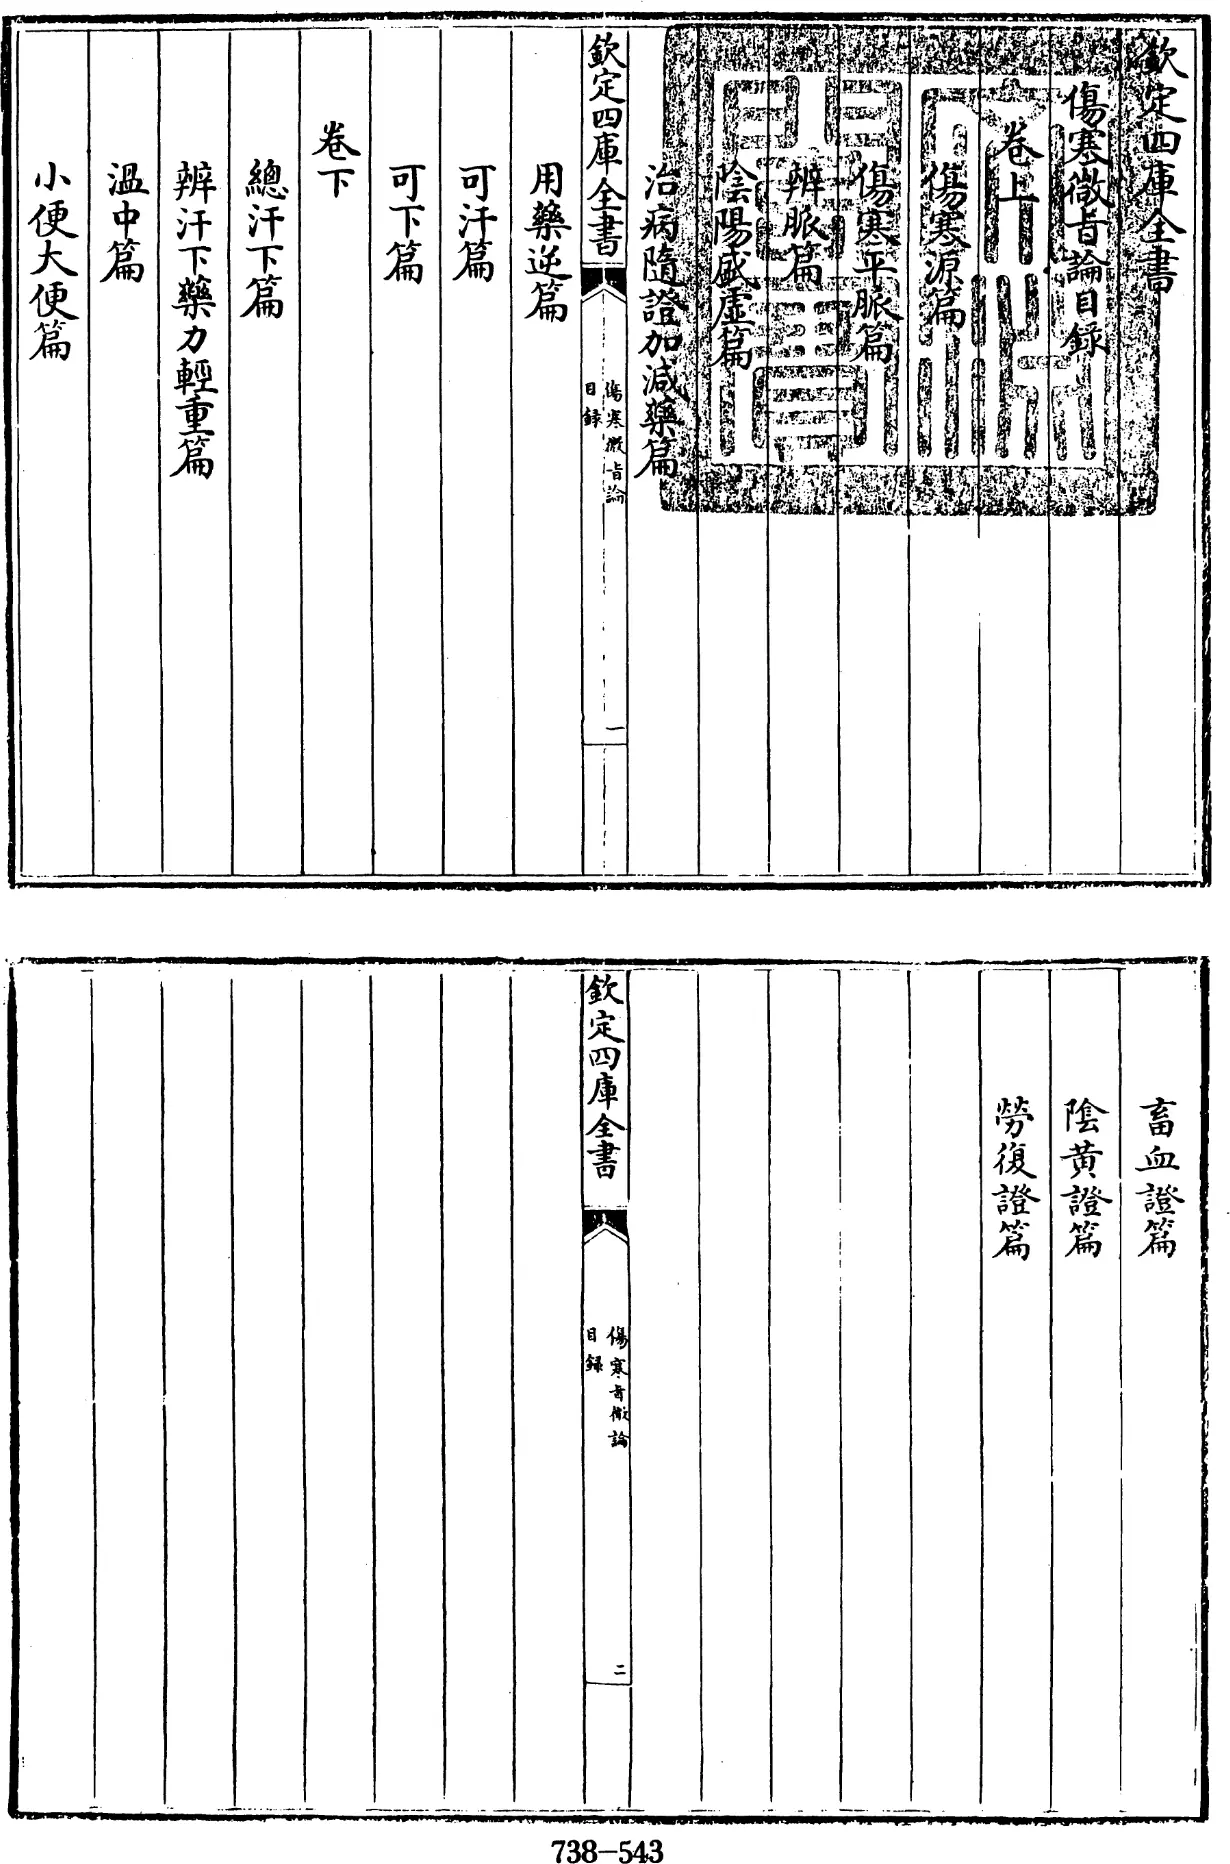 欽定四庫全書
傷寒微旨論目録
卷上
傷寒源篇
傷寒平脈篇
辨脈篇
陰陽盛虛篇
治病隨證加減藥篇
欽定四庫全書
傷寒微旨論
目録
一
用藥逆篇
可汗篇
可下篇
卷下
總汗下篇
辨汗下藥力輕重篇
溫中篇
小便大便篇
畜血證篇
陰黃證篇
勞復證篇
欽定四庫全書
傷寒旨微論
目録
二
738-543